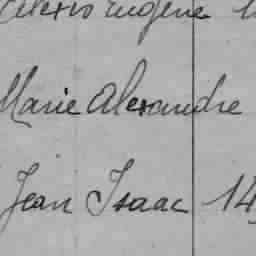 Alexis Eugène
Marie Alexandre
Jean Isaac 14